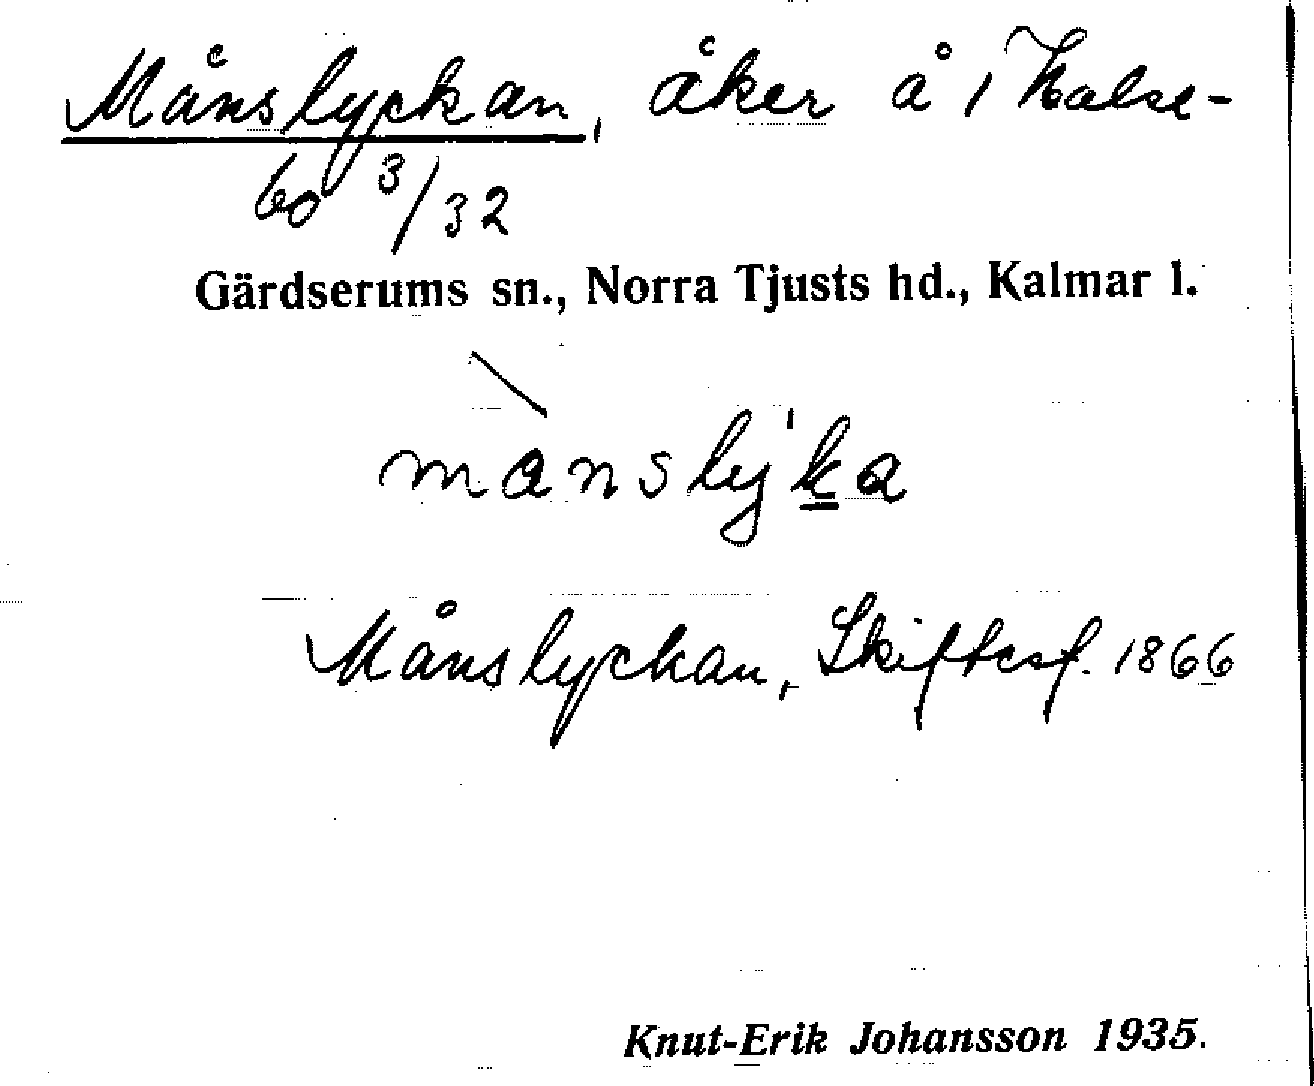 Månslyckan, åker å 1 Halse-
bo 3/32
Gärdserums sn., Norra Tjusts hd., Kalmar l.
månsly'ka
Månslyckan, Skiftesf. 1866
Knut-Erik Johansson 1935.